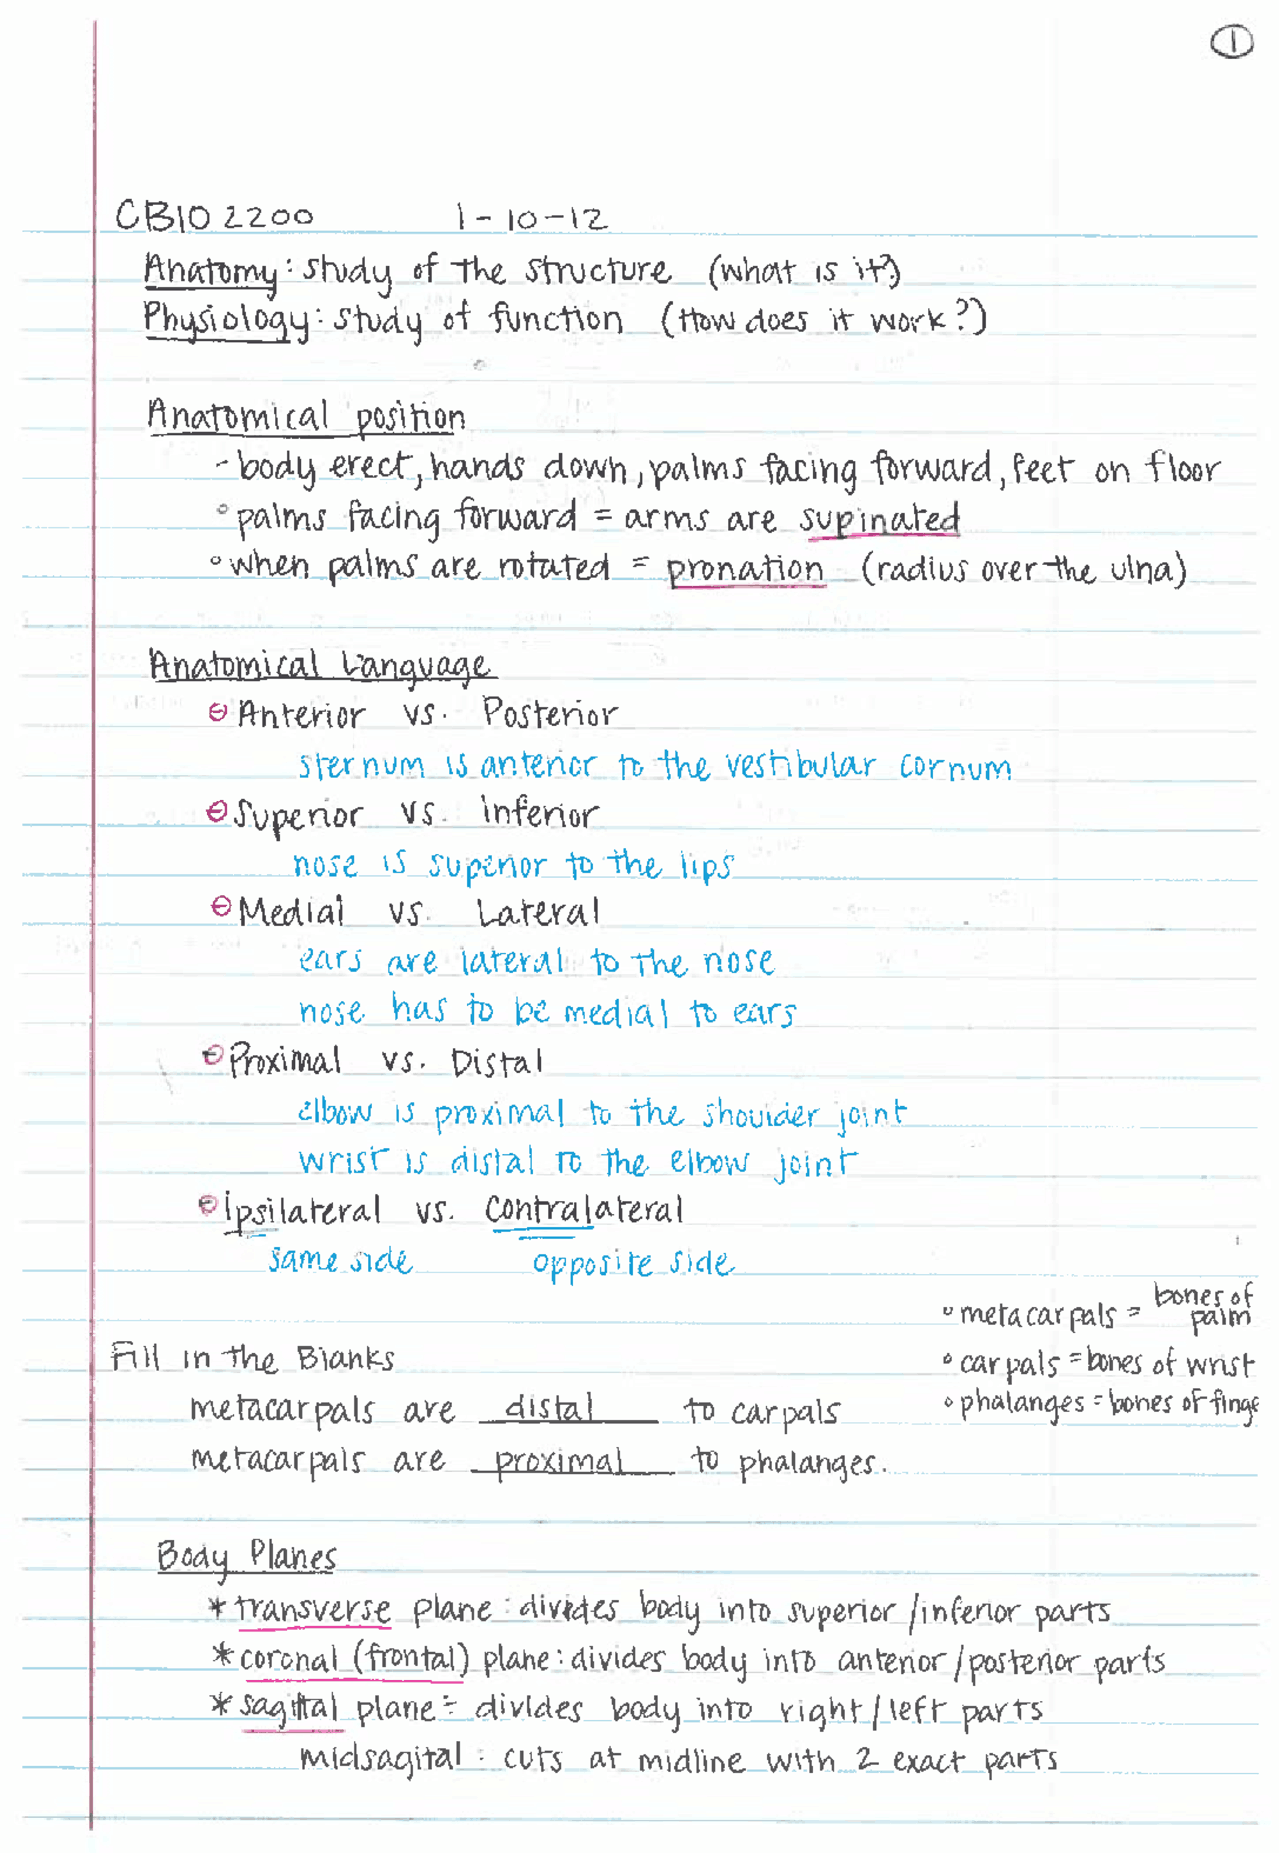 1
CBIO 2200 1-10-12
Anatomy: study of the structure (what is it?)
Physiology: study of function (How does it work?)
Anatomical position
- body erect, hands down, palms facing forward, feet on floor
° palms facing forward = arms are supinated
° when palms are rotated = pronation (radius over the ulna)
Anatomical Language
⊖ Anterior vs. Posterior
sternum is anterior to the vestibular cornum
⊖ Superior vs. Inferior
nose is superior to the lips
⊖ Medial vs. Lateral
ears are lateral to the nose
nose has to be medial to ears
⊖ Proximal vs. Distal
elbow is proximal to the shoulder joint
wrist is distal to the elbow joint
⊖ ipsilateral vs. contralateral
same side opposite side
° metacarpals = bones of palm
° carpals = bones of wrist
° phalanges = bones of finge
Fill in the Blanks
metacarpals are distal to carpals
metacarpals are proximal to phalanges.
Body Planes
* transverse plane: divides body into superior/inferior parts
* coronal (frontal) plane: divides body into anterior/posterior parts
* sagittal plane: divides body into right/left parts
midsagital: cuts at midline with 2 exact parts